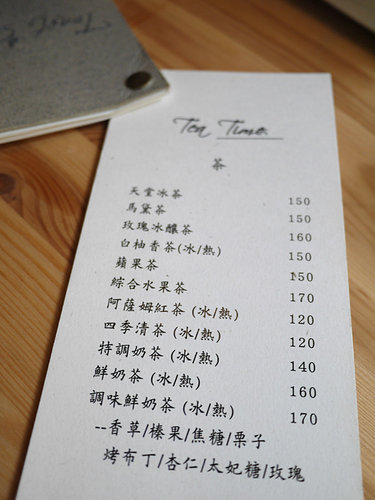 Tea Time.
茶
天堂冰茶 150
馬黛茶 150
玫瑰冰釀茶 160
白柚香茶(冰/熱) 150
蘋果茶 150
綜合水果茶 170
阿薩姆紅茶 (冰/熱) 120
四季清茶 (冰/熱) 120
特調奶茶 (冰/熱) 140
鮮奶茶 (冰/熱) 160
調味鮮奶茶 (冰/熱) 170
--香草/榛果/焦糖/栗子
烤布丁/杏仁/太妃糖/玫瑰